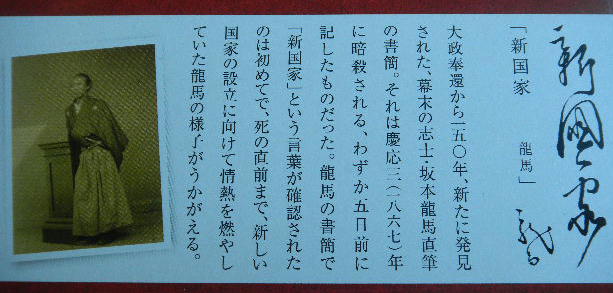 新國家
龍馬
「新国家 龍馬」
大政奉還から一五〇年、新たに発見
された、幕末の志士・坂本龍馬直筆
の書簡。それは慶応三（一八六七）年
に暗殺される、わずか五日前に
記したものだった。龍馬の書簡で
「新国家」という言葉が確認された
のは初めてで、死の直前まで、新しい
国家の設立に向けて情熱を燃やし
ていた龍馬の様子がうかがえる。